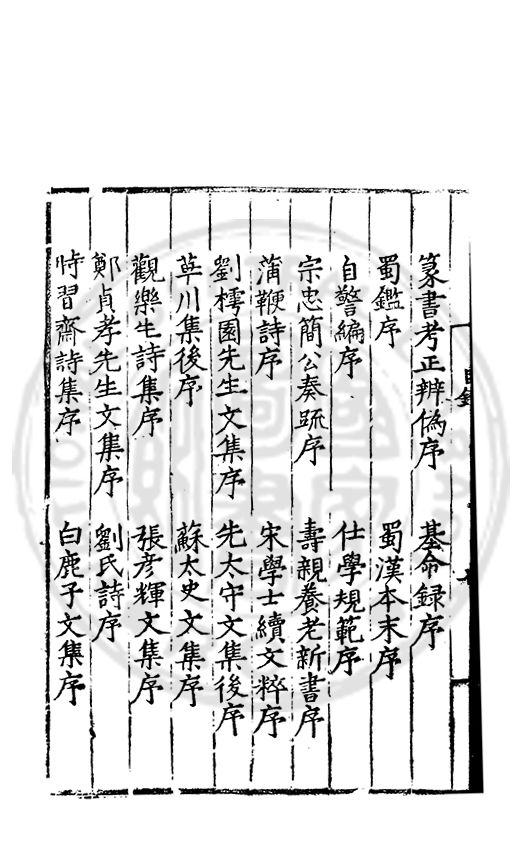 目錄
篆書考正辨僞序 基命録序
蜀鑑序 蜀漢本末序
自警編序 仕學規範序
宗忠簡公奏疏序 壽親養老新書序
蒲鞭詩序 宋學士續文粹序
劉樗園先生文集序 先太守文集後序
苹川集後序 蘇太史文集序
觀樂生詩集序 張彦輝文集序
鄭貞孝先生文集序 劉氏詩序
時習齋詩集序 白鹿子文集序